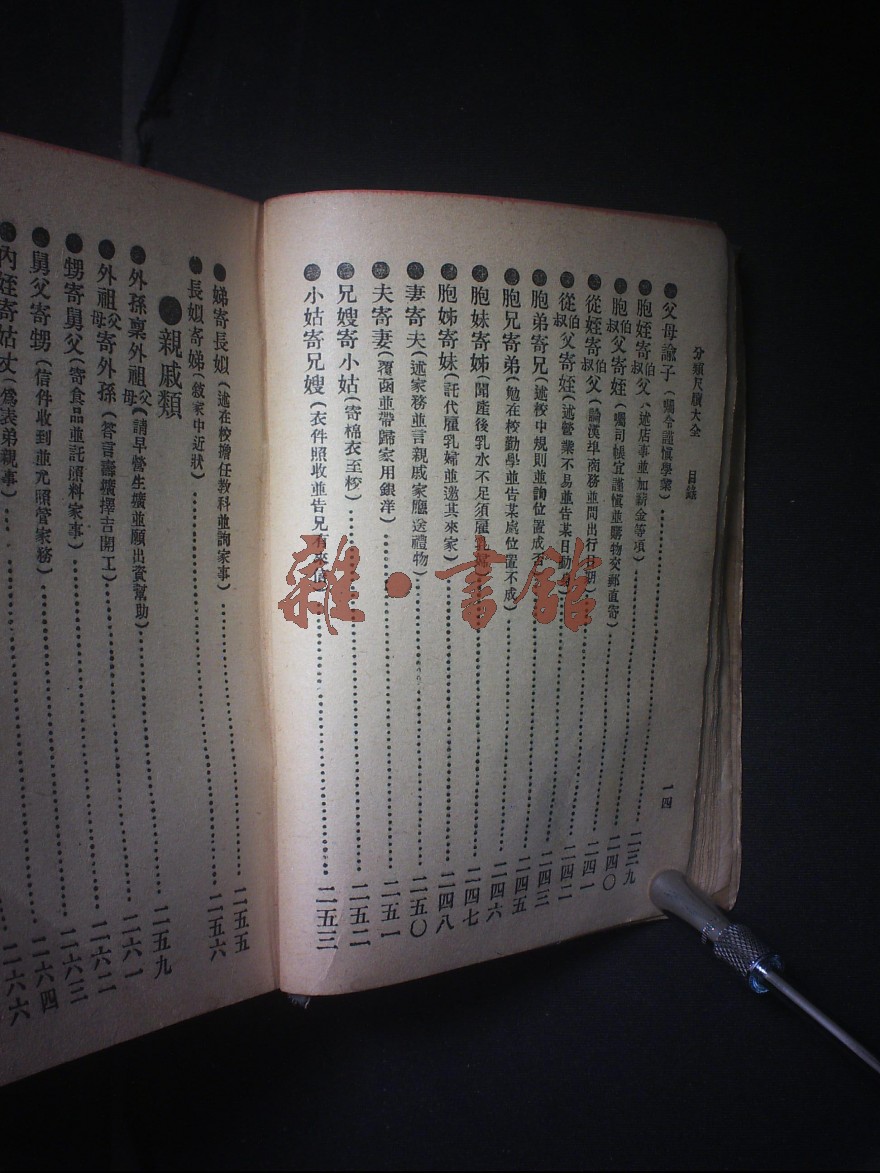 分類尺牘大全　目錄
一四
父母諭子（囑令謹慎學業）
胞姪寄伯叔父（述店事並加薪金等項）……二三九
胞伯叔父寄姪（囑司帳宜謹慎並購物交郵直寄）……二四〇
從姪寄伯叔父（論漢埠商務並問出行日期）……二四一
從伯叔父寄姪（述營業不易並告某日動身）……二四二
胞弟寄兄（述校中規則並詢位置成否）……二四三
胞兄寄弟（勉在校勤學並告某處位置不成）……二四五
胞妹寄姊（聞產後乳水不足須雇乳婦）……二四六
胞姊寄妹（託代雇乳婦並邀其來家）……二四七
妻寄夫（述家務並言親戚家應送禮物）……二四八
夫寄妻（覆函並帶歸家用銀洋）……二五〇
兄嫂寄小姑（寄棉衣至校）……二五一
小姑寄兄嫂（衣件照收並告兄有來信）……二五二
二五三
娣寄長姒（述在校擔任教科並詢家事）……二五五
長姒寄娣（敘家中近狀）……二五六
親戚類
外孫稟外祖父母（請早營生壙並願出資幫助）……二五九
外祖父母寄外孫（答言壽壙擇吉開工）……二六一
甥寄舅父（寄食品並託照料家事）……二六二
舅父寄甥（信件收到並允照管家務）……二六三
內姪寄姑丈（為表弟親事）……二六四
二六六
雜·書館